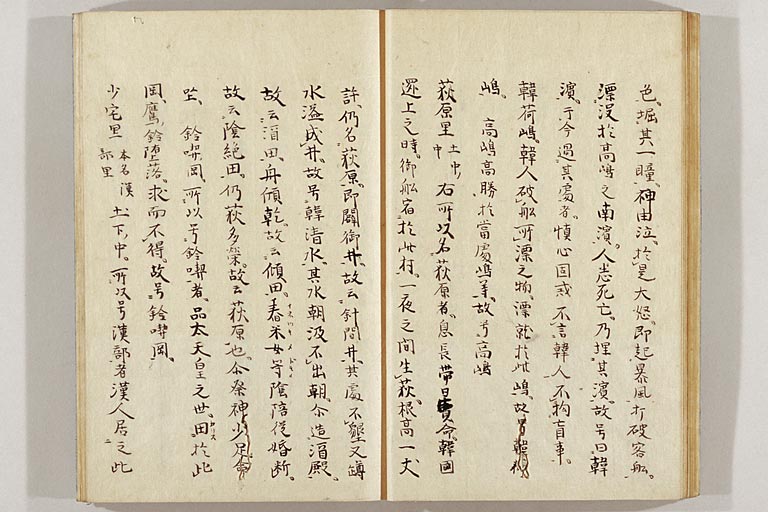 色堀其一瞳神由泣於是大怒即起暴風打破客舩
漂没於高嶋之南濱人悉死亡乃埋其濱故号曰韓
濱于今過其處者慎心固戒不言韓人不拘盲事
韓荷嶋韓人破舩所漂之物漂就於此嶋故号韓荷
嶋 高嶋高勝於當處嶋等故号高嶋
萩原里 土中々 右所以名萩原者息長帯日賣命韓國
還上之時御舩宿於此村一夜之間生萩根高一丈
許仍名萩原即闢御井故云針間井其處不墾又罇
水溢成井故号韓清水其水朝汲不出朝尒造酒殿
故云酒田舟傾乾故云傾田舂米女等陰陪従婚断
故云陰絶田仍萩多榮故云萩原也尒祭神少足命
坐 鈴喫岡所以号鈴喫者品太天皇之世田於此
岡鷹鈴堕落求而不得故号鈴喫岡
少宅里 本名漢部里 土下中所以号漢部者漢人居之此